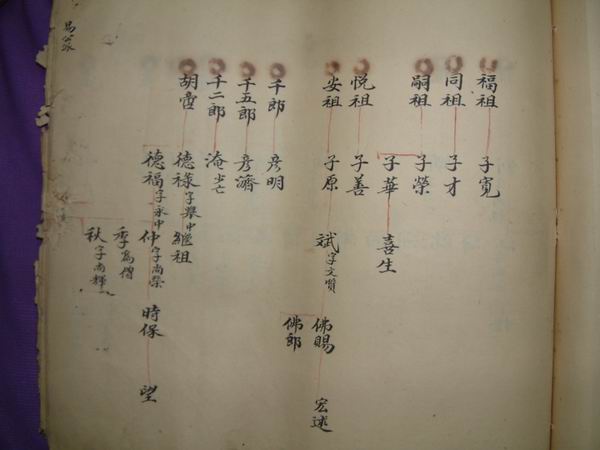 福祖 子寛
同祖 子才
嗣祖 子榮
子華 喜生
悦祖 子善
安祖 子原 斌字文質 佛賜 宏述
佛郎
千郎 彦明
千五郎 彦濟
千二郎 淹少亡
德祿字舉中 繼祖
德福字永中 仲字尚榮 時保 望
季為僧
秋字尚輝